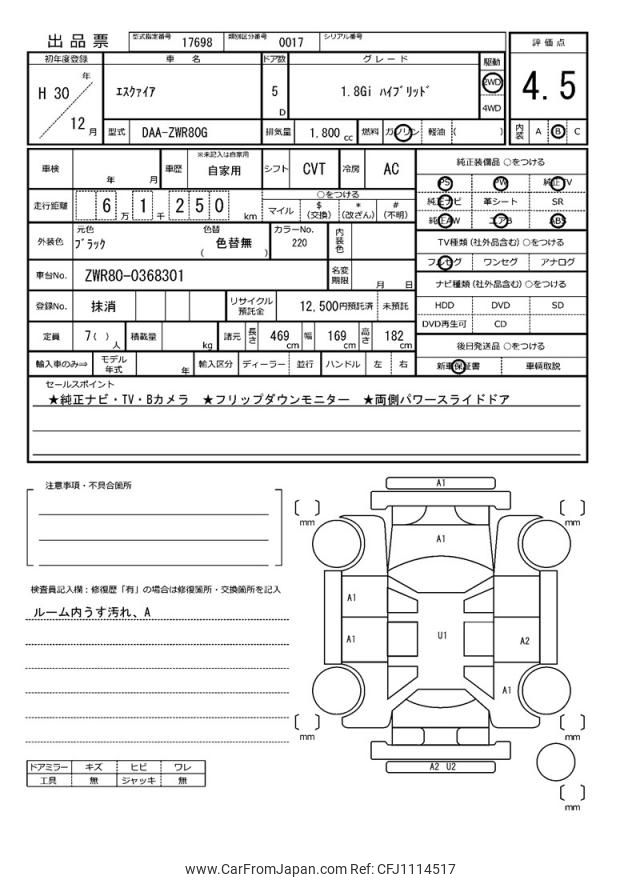 出品票 型式指定番号 17698 類別区分番号 0017 シリアル番号
評価点
4.5
内装 A B C
初年度登録 車名 ドア数 グレード 駆動
H 30 年 12 月
エスクァイア
5 D
1.8Gi ハイブリッド
2WD
4WD
型式 DAA-ZWR80G 排気量 1,800 cc 燃料 ガソリン 軽油 ( )
車検 年 月 車歴 ※未記入は自家用 自家用 シフト CVT 冷房 AC
走行距離 6 万 1 千 2 5 0 km
○をつける
マイル $ (交換) * (改ざん) # (不明)
外装色 元色 ブラック 色替 色替無 ( ) カラーNo. 220 内装色
車台No. ZWR80-0368301 名変期限 月 日
登録No. 抹消 リサイクル預託金 12,500円預託済 未預託
定員 7( ) 人 積載量 kg 諸元 長さ 469 cm 幅 169 cm 高さ 182 cm
輸入車のみ⇒ モデル年式 年 輸入区分 ディーラー 並行 ハンドル 左 右
純正装備品 ○をつける
PS PW 純正TV
純正ナビ 革シート SR
純正AW エアB ABS
TV種類 (社外品含む) ○をつける
フルセグ ワンセグ アナログ
ナビ種類 (社外品含む) ○をつける
HDD DVD SD
DVD再生可 CD
後日発送品 ○をつける
新車保証書 車輌取説
セールスポイント
★純正ナビ・TV・Bカメラ ★フリップダウンモニター ★両側パワースライドドア
注意事項・不具合箇所
検査員記入欄:修復歴「有」の場合は修復箇所・交換箇所を記入
ルーム内うす汚れ、A
ドアミラー キズ ヒビ ワレ
工具 無 ジャッキ 無
A1
mm mm
A1
A1
A1 U1 A2
A1
mm mm
A2 U2
mm
www.CarFromJapan.com Ref: CFJ1114517